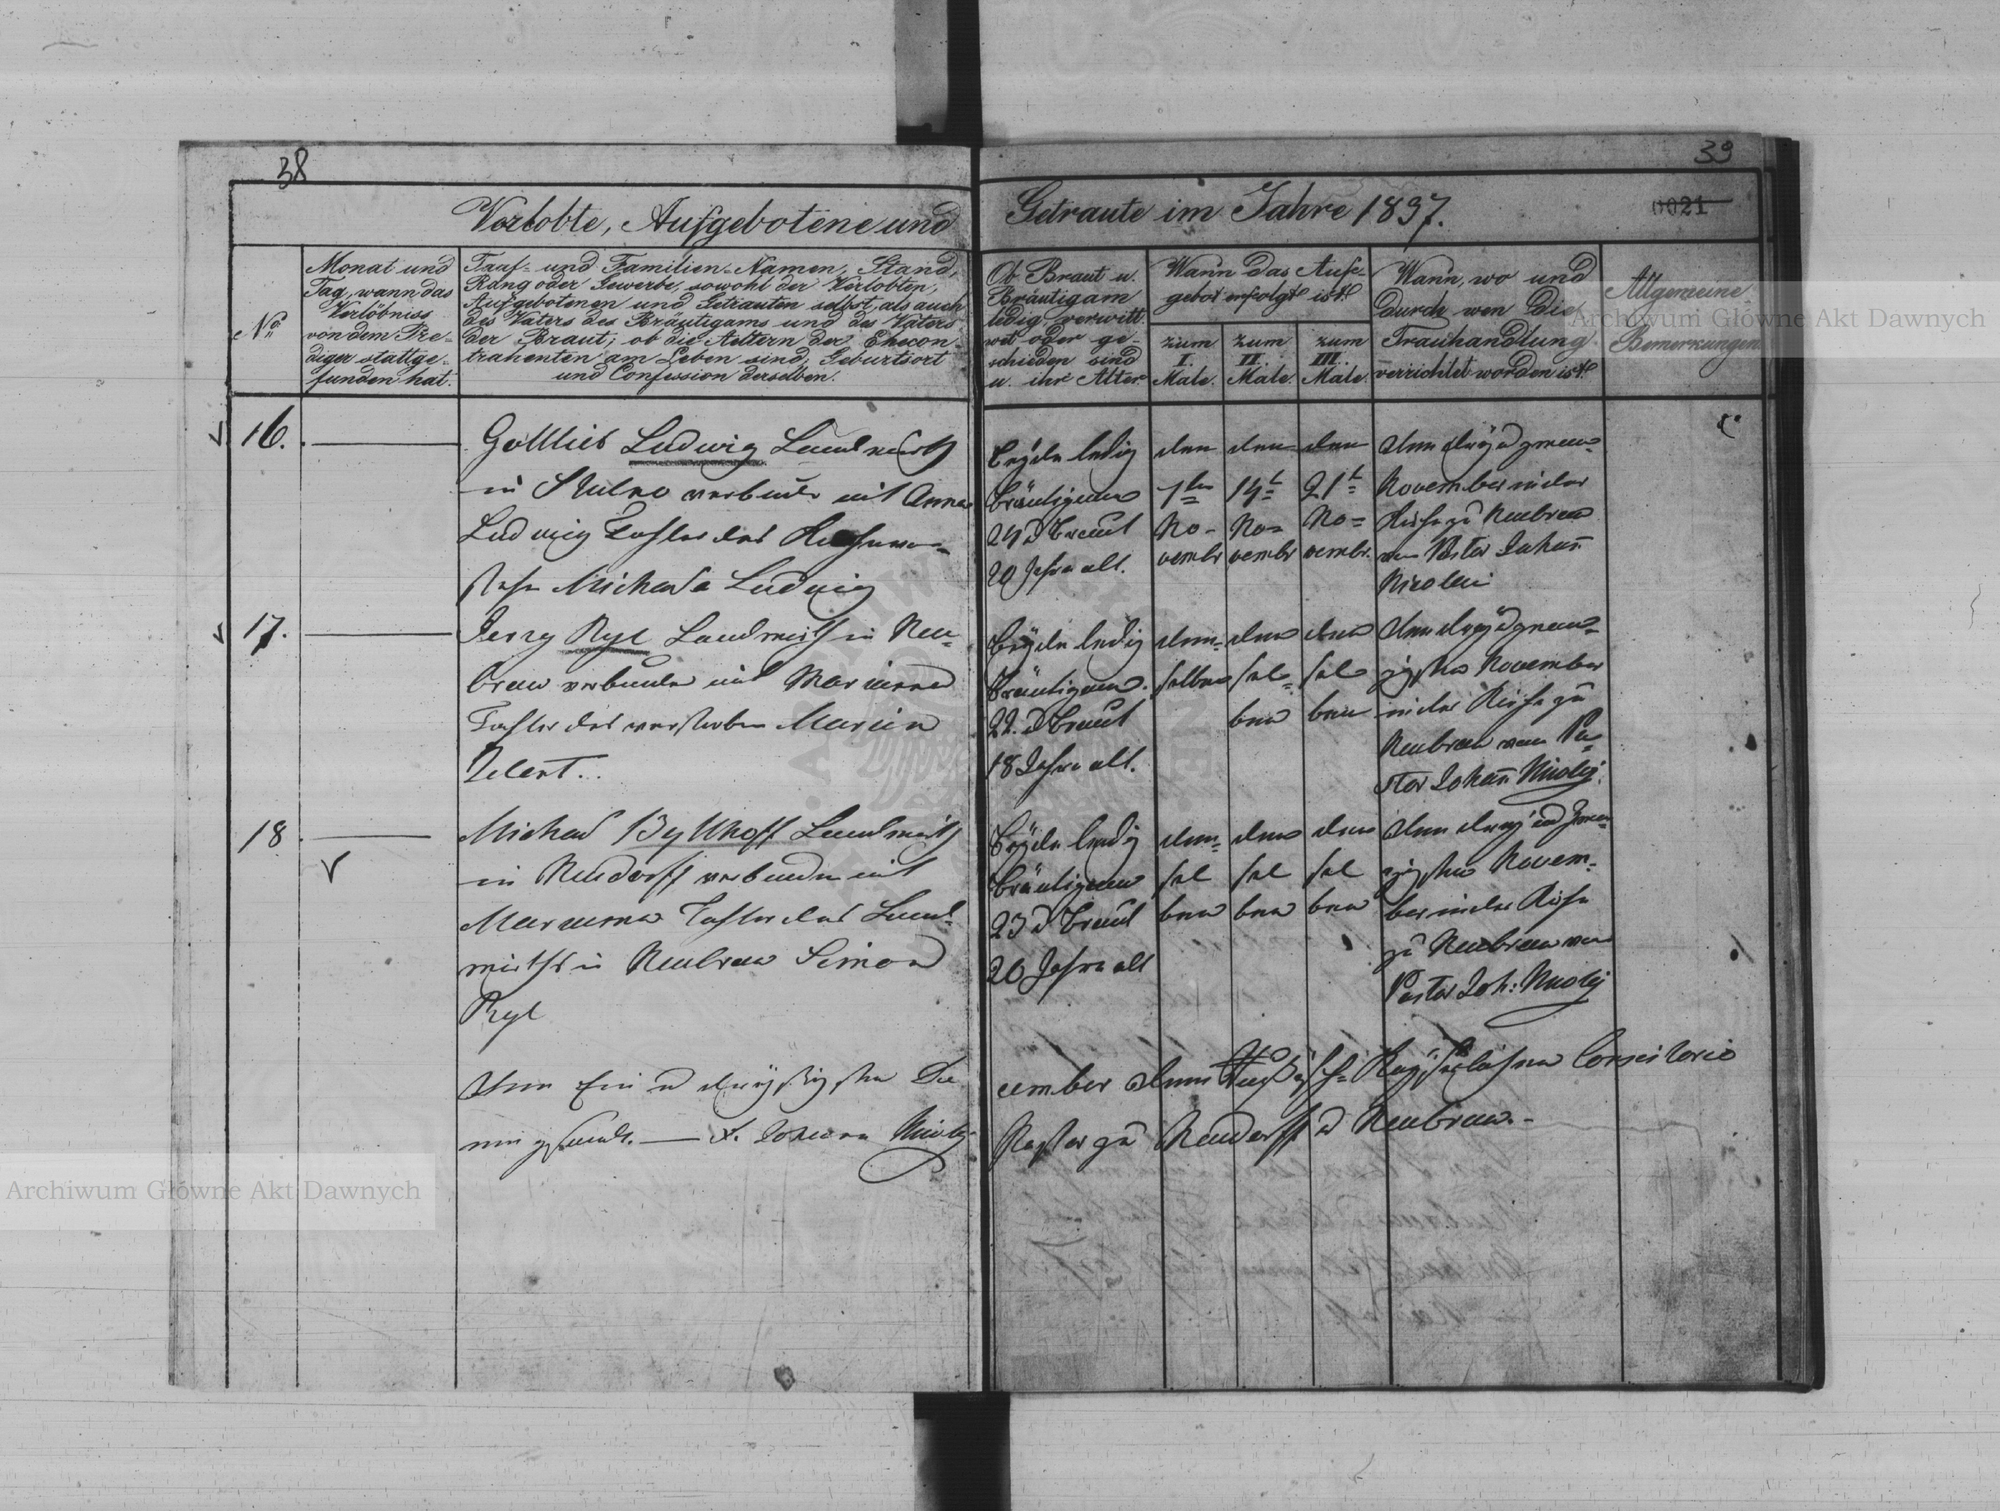 38
39
Verlobte, Aufgebotene und
Getraute im Jahre 1837.
0021
No
Monat und
Tag, wann das
Verlöbniss
von dem Pre-
diger stattge-
funden hat.
Tauf- und Familien-Namen, Stand,
Rang oder Gewerbe, sowohl der Verlobten,
Aufgebotenen und Getrauten selbst, als auch
des Vaters des Bräutigams und des Vaters
der Braut; ob die Aeltern der Ehecon-
trahenten am Leben sind, Geburtsort
und Confession derselben.
Ob Braut u.
Bräutigam
ledig, verwitt-
wet oder ge-
schieden sind
u. ihr Alter.
Wann das Auf-
gebot erfolgt ist.
zum
I.
Male.
zum
II.
Male.
zum
III.
Male.
Wann, wo und
durch wen die
Trauhandlung
verrichtet worden ist.
Allgemeine
Bemerkungen
16.
Gottlieb Ludwig Landwirth
in verbunden mit Anna
Ludwig Tochter des
Michael Ludwig
Beyde ledig
Bräutigam
24 d Braut
20 Jahre alt.
den
7ten
No-
vembr
den
14t
No-
vembr
den
21t
No-
vembr.
November in der
Kirche zu Neubrow
von Pastor Johann
Nicolai
17.
Jerzy Ryl Landwirth in Neu-
brow verbunden mit Marianna
Tochter des verstorben Marcin
Beyde ledig
Bräutigam
22. d Braut
18 Jahre alt.
den-
selben
den
sel-
ben
den
sel
ben
zigsten November
in der Kirche zu
Neubrow von Pa-
stor Johann Nicolaj.
18
Michael Landwirth
in Neudorff verbunden mit
Marianna Tochter des Land-
wirths in Neubrow Simon
Ryl
Beyde ledig
Bräutigam
23 d Braut
20 Jahre alt
den-
sel
ben
den
sel
ben
den
sel
ben
zigsten Novem-
ber in der Kirche
zu Neubrow von
Pastor Joh: Nicolaj
Den Ein d dreyßigsten De
cember dem Consistorio
eingesandt. — Johann Nicolaj
Pastor zu Neudorff d Neubrow.
Archiwum Główne Akt Dawnych
Archiwum Główne Akt Dawnych